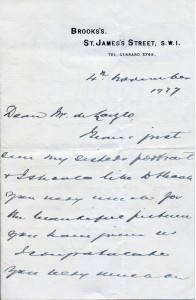 BROOKS'S,
ST. JAMES'S STREET, S.W.1.
TEL. GERRARD 3745.
4th November
1937
Dear Mr. de Laszlo
I have just
seen my sisters portrait
& I should like to thank
you very much for
the beautiful picture
you have given us
I congratulate
you very much on